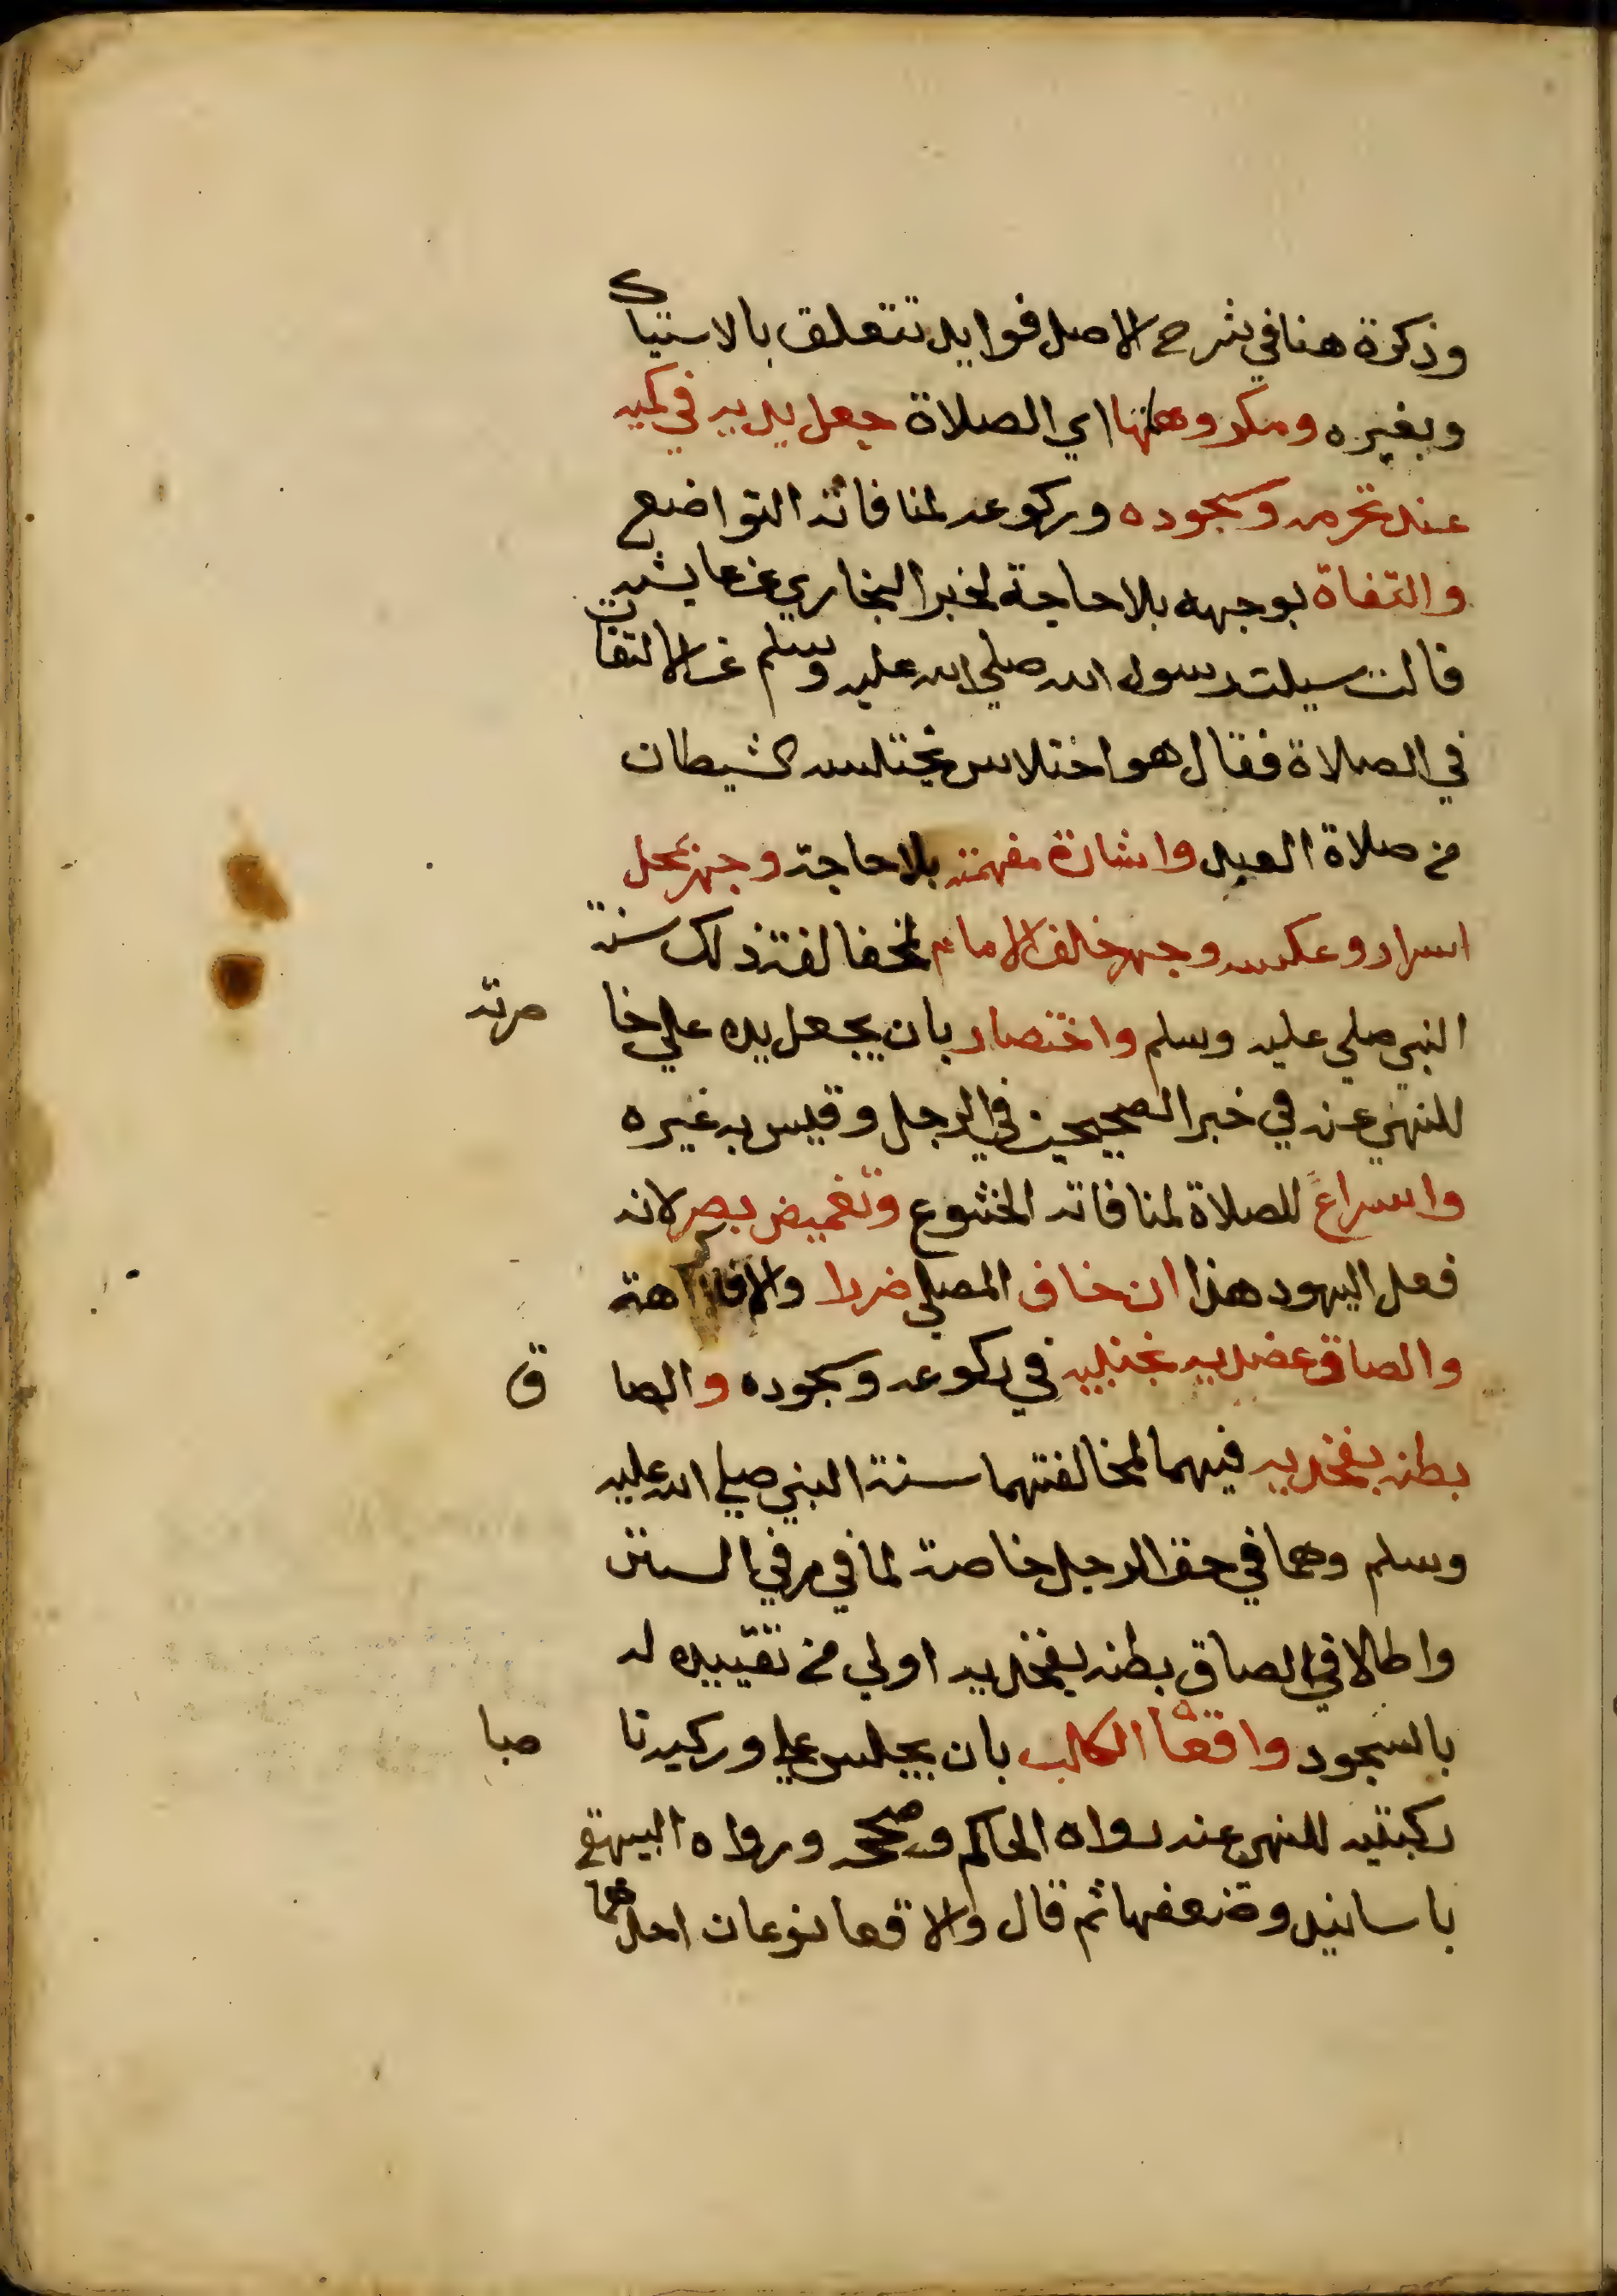 وذكرة هنا في شرح الاصل فوايد تتعلق بالاستياك
وبغيره ومكروهاتها اي الصلاة جعل يديه في كميه
عند تحرمه وسجوده وركوعه لمنافاته التواضع
والتفاة بوجهه بلا حاجة لخبر البخاري عن عايشه
قالت سيلت رسول الله صلي الله عليه وسلم عن الالتفات
في الصلاة فقال هو اختلاس يختلسه الشيطان
من صلاة العبد واشارة مفهمة بلا حاجة وجهر بمحل
اسرار وعكسه وجهر خلف الامام لمخفالفة ذلك سنة
النبي صلي عليه وسلم واختصار بان يجعل يده علي خا صرته
للنهي عنه في خبر الصحيحين في الرجل وقيس به غيره
واسراع للصلاة لمنافاته الخشوع وتغميض بصر لانه
فعل اليهود هذا ان خاف المصلي ضررا والا فلا كراهة
والصاق عضديه بجنبيه في ركوعه وسجوده والصا ق
بطنه بفخديه فيهما لمخالفتهما سنة النبي صلي الله عليه
وسلم وهما في حق الرجل خاصة لما في مر في السنن
واطالا في الصاق بطنه بفخديه اولي من تقييده له
بالسجود واقعا الكلب بان يجلس علي وركيه نا صبا
ركبتيه للنهي عنه رواه الحاكم وصححه ورواه البيهقي
باسانيد وضعفها ثم قال والاقعا نوعان احدهما